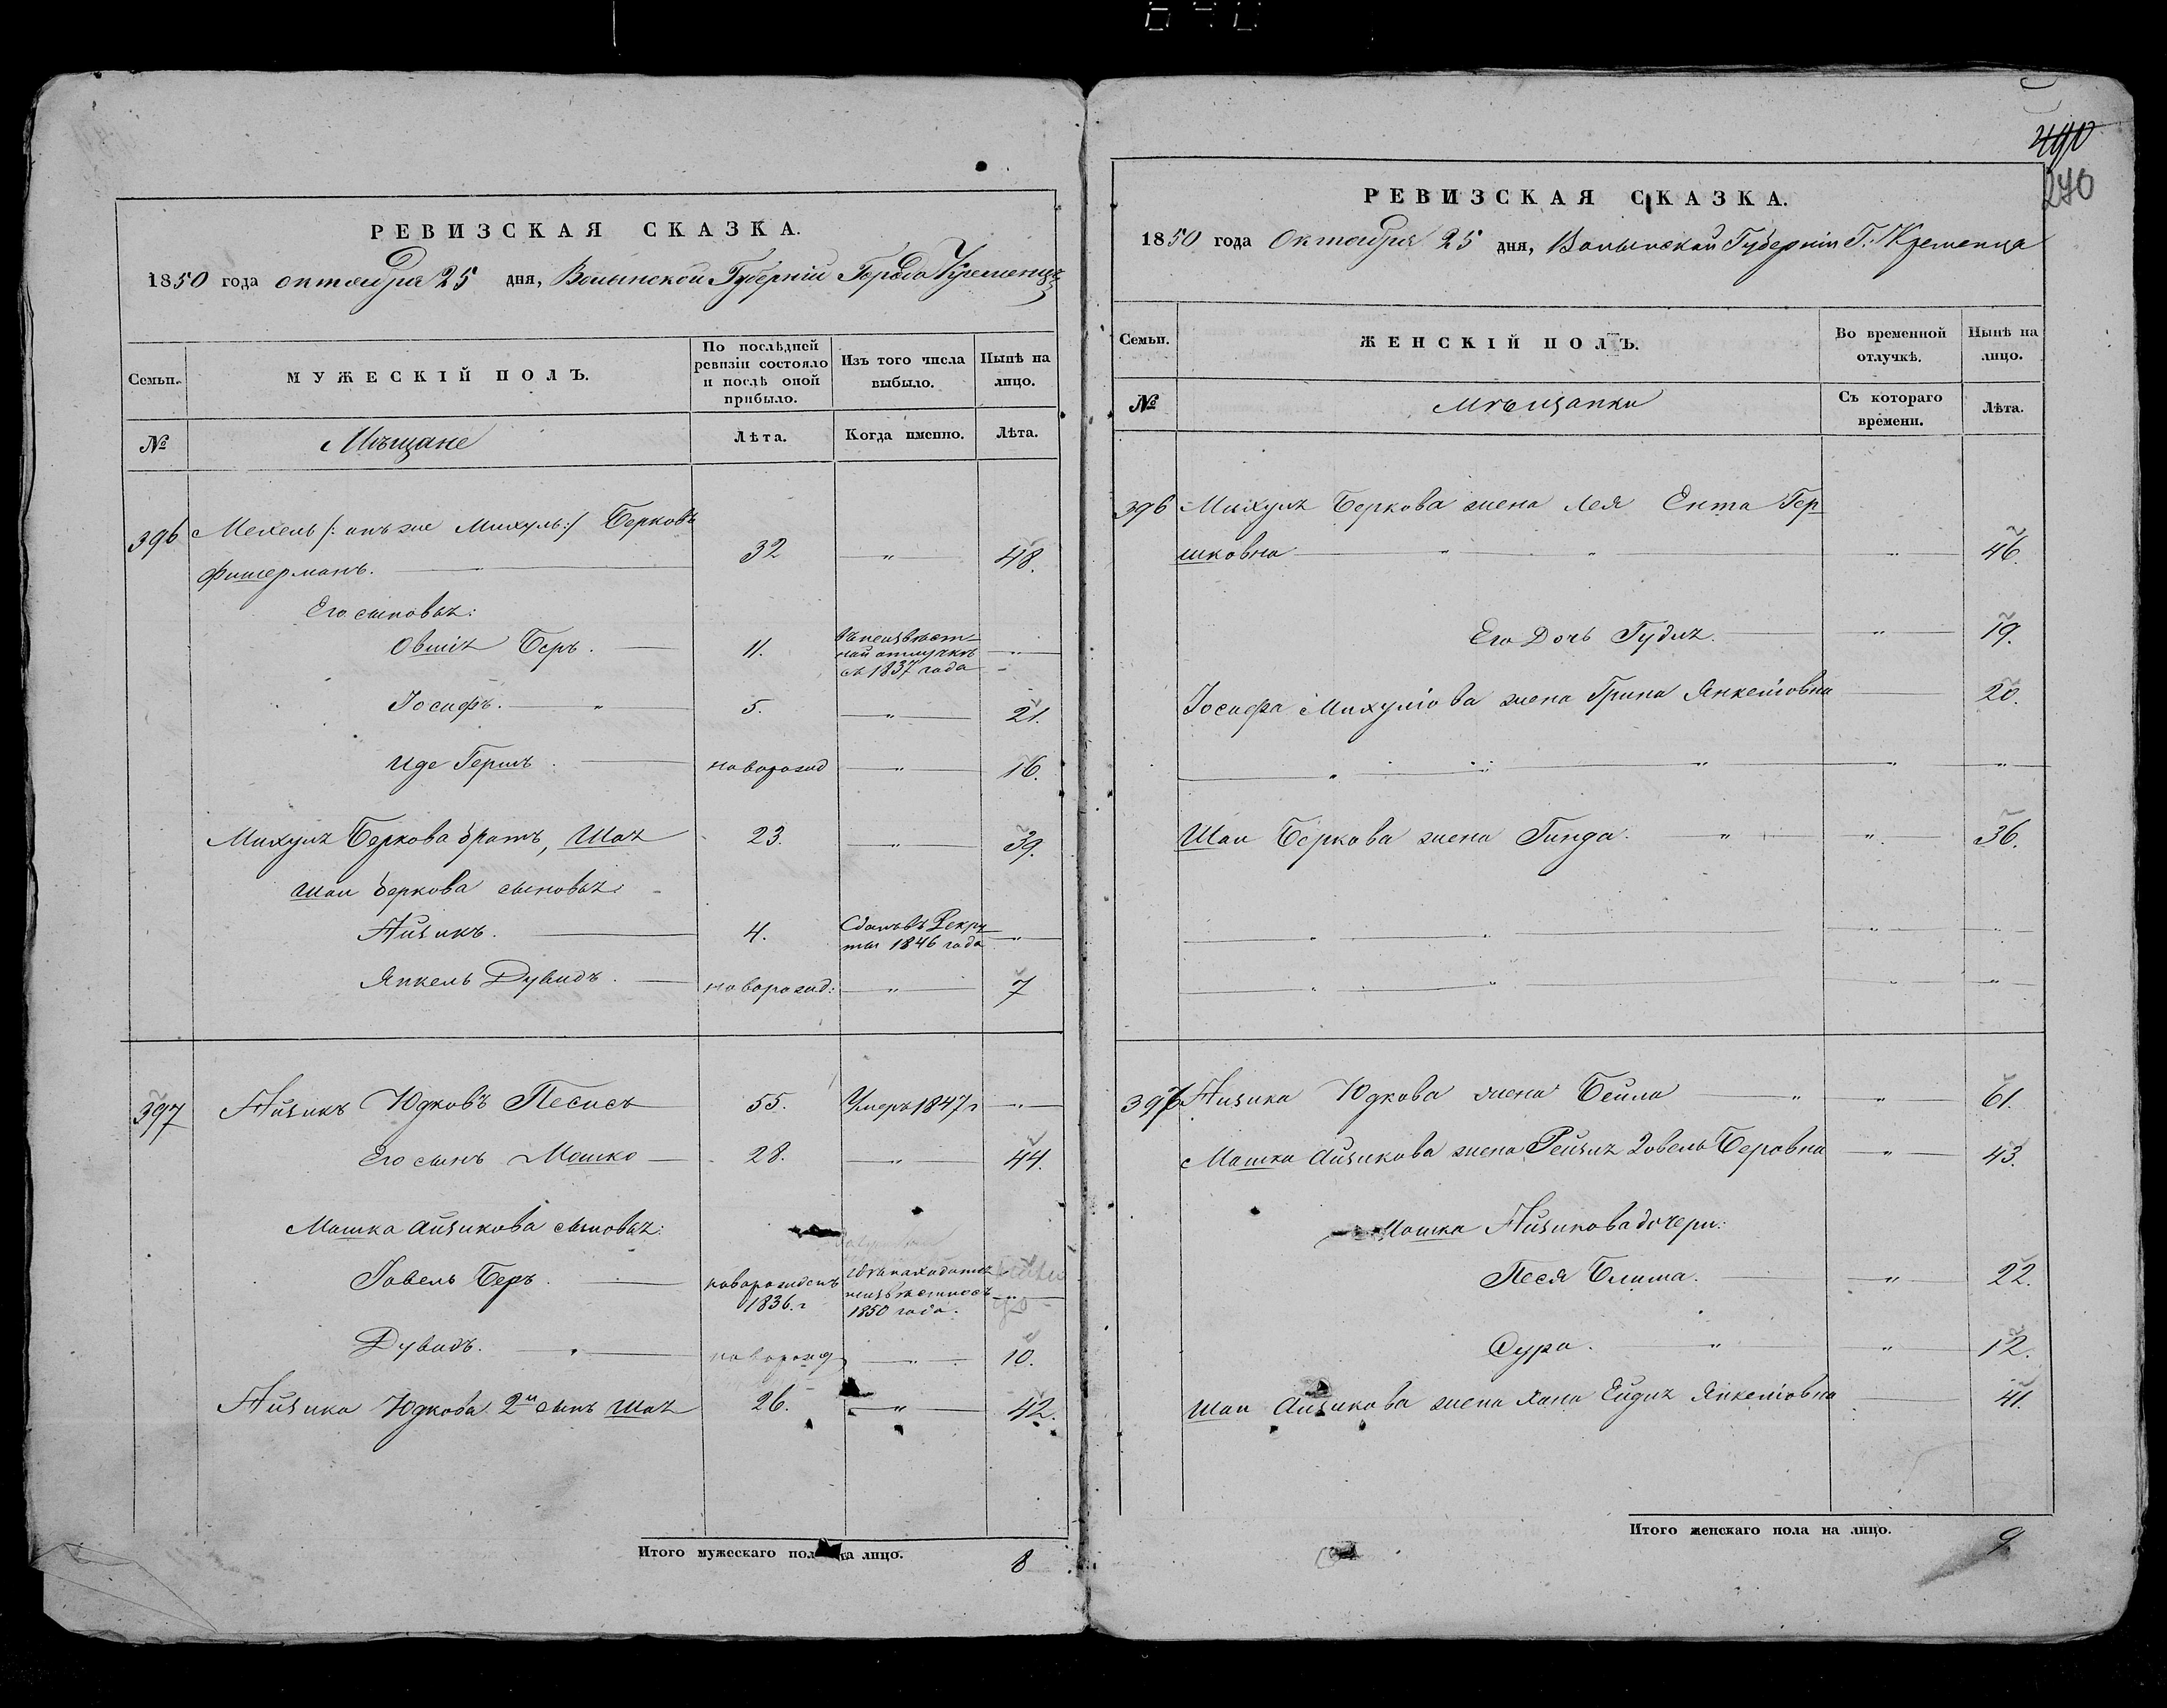 РЕВИЗСКАЯ СКАЗКА.
1850 года октября 25 дня, Волынской Губерніи Города Кременца
Семьи.
МУЖЕСКІЙ ПОЛЪ.
По послѣдней ревизіи состояло и послѣ оной прибыло.
Изъ того числа выбыло.
Нынѣ на лицо.
№
Мѣщане
Лѣта.
Когда именно.
Лѣта.
396 Мехель /: онъ же Михуль :/ Берковъ
Фишерманъ. 32 " 48.
Его сыновья:
Овшія Беръ. 11. Въ неизвѣст-
ной отлучкѣ "
съ 1837 года
Іосифъ. " 5. " 21.
Иде Гершъ. новорожд " 16.
Михуля Беркова братъ, Шая 23. " 39.
Шаи Беркова сыновья:
Айзикъ. 4. Сданъ въ Рекру
ты 1846 года "
Янкель Дувидъ. новорожд: " 7
397 Айзикъ Юдковъ Песисъ 55. Умеръ 1847 г "
Его сынъ Мошко 28. " 44.
Мошка Айзикова сыновья:
Говель Беръ. новорожденъ
1836. г
гдѣ находится
неизвѣстно съ "
1850 года.
Дувидъ. " новорожд " 10.
Айзика Юдкова 2й сынъ Шая 26. " 42.
Итого мужескаго пола на лицо. 8
490
270
РЕВИЗСКАЯ СКАЗКА.
1850 года Октября 25 дня, Волынской Губерніи Г. Кременца
Семьи.
ЖЕНСКІЙ ПОЛЪ.
Во временной отлучкѣ.
Нынѣ на лицо.
№
Мѣщанки
Съ котораго времени.
Лѣта.
396 Михуля Беркова жена Лея Ента Гер
шковна " " " 46.
Его Дочь Гудля. " 19.
Іосифа Михулiова жена Грина Янкелiовна 20.
" " " " "
Шаи Беркова жена Гинда. " " 36.
" " " "
" " " "
397 Айзика Юдкова жена Бейла " " 61.
Мошка Айзикова жена Рейзля Говель Беровна " 43.
Мошка Айзикова дочери:
Песя Блима. " 22.
Сура. " " 12.
Шаи Айзикова жена Хана Ейдля Янкелiовна 41.
Итого женскаго пола на лицо. 9